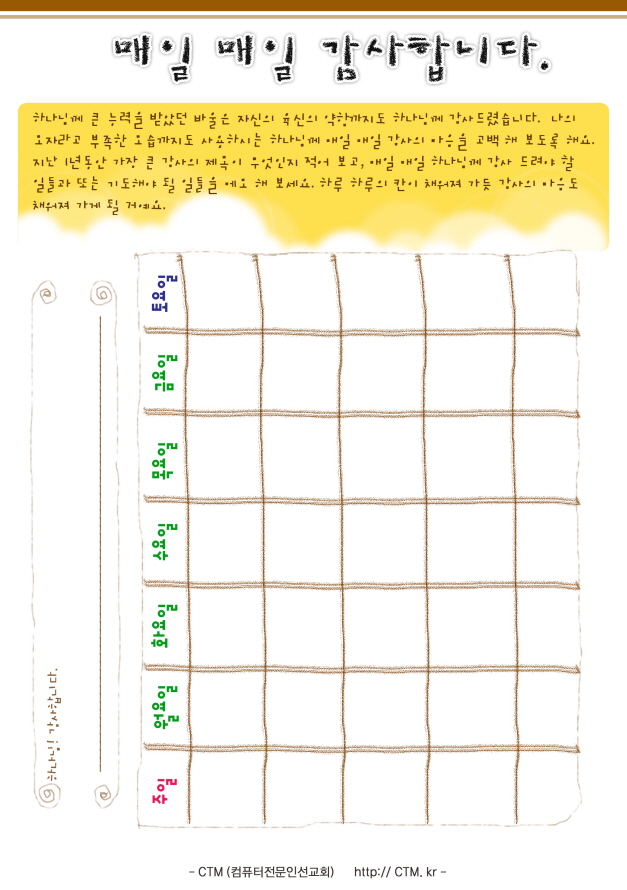 매일 매일 감사합니다.
하나님께 큰 능력을 받았던 바울은 자신의 육신의 약함까지도 하나님께 감사드렸습니다. 나의
모자라고 부족한 모습까지도 사용하시는 하나님께 매일 매일 감사의 마음을 고백 해 보도록 해요.
지난 1년동안 가장 큰 감사의 제목이 무엇인지 적어 보고, 매일 매일 하나님께 감사 드려야 할
일들과 또는 기도해야 될 일들을 메모 해 보세요. 하루 하루의 칸이 채워져 가듯 감사의 마음도
채워져 가게 될 거예요.
토요일
금요일
목요일
수요일
화요일
월요일
주일
하나님! 감사합니다.
- CTM (컴퓨터전문인선교회) http:// CTM. kr -